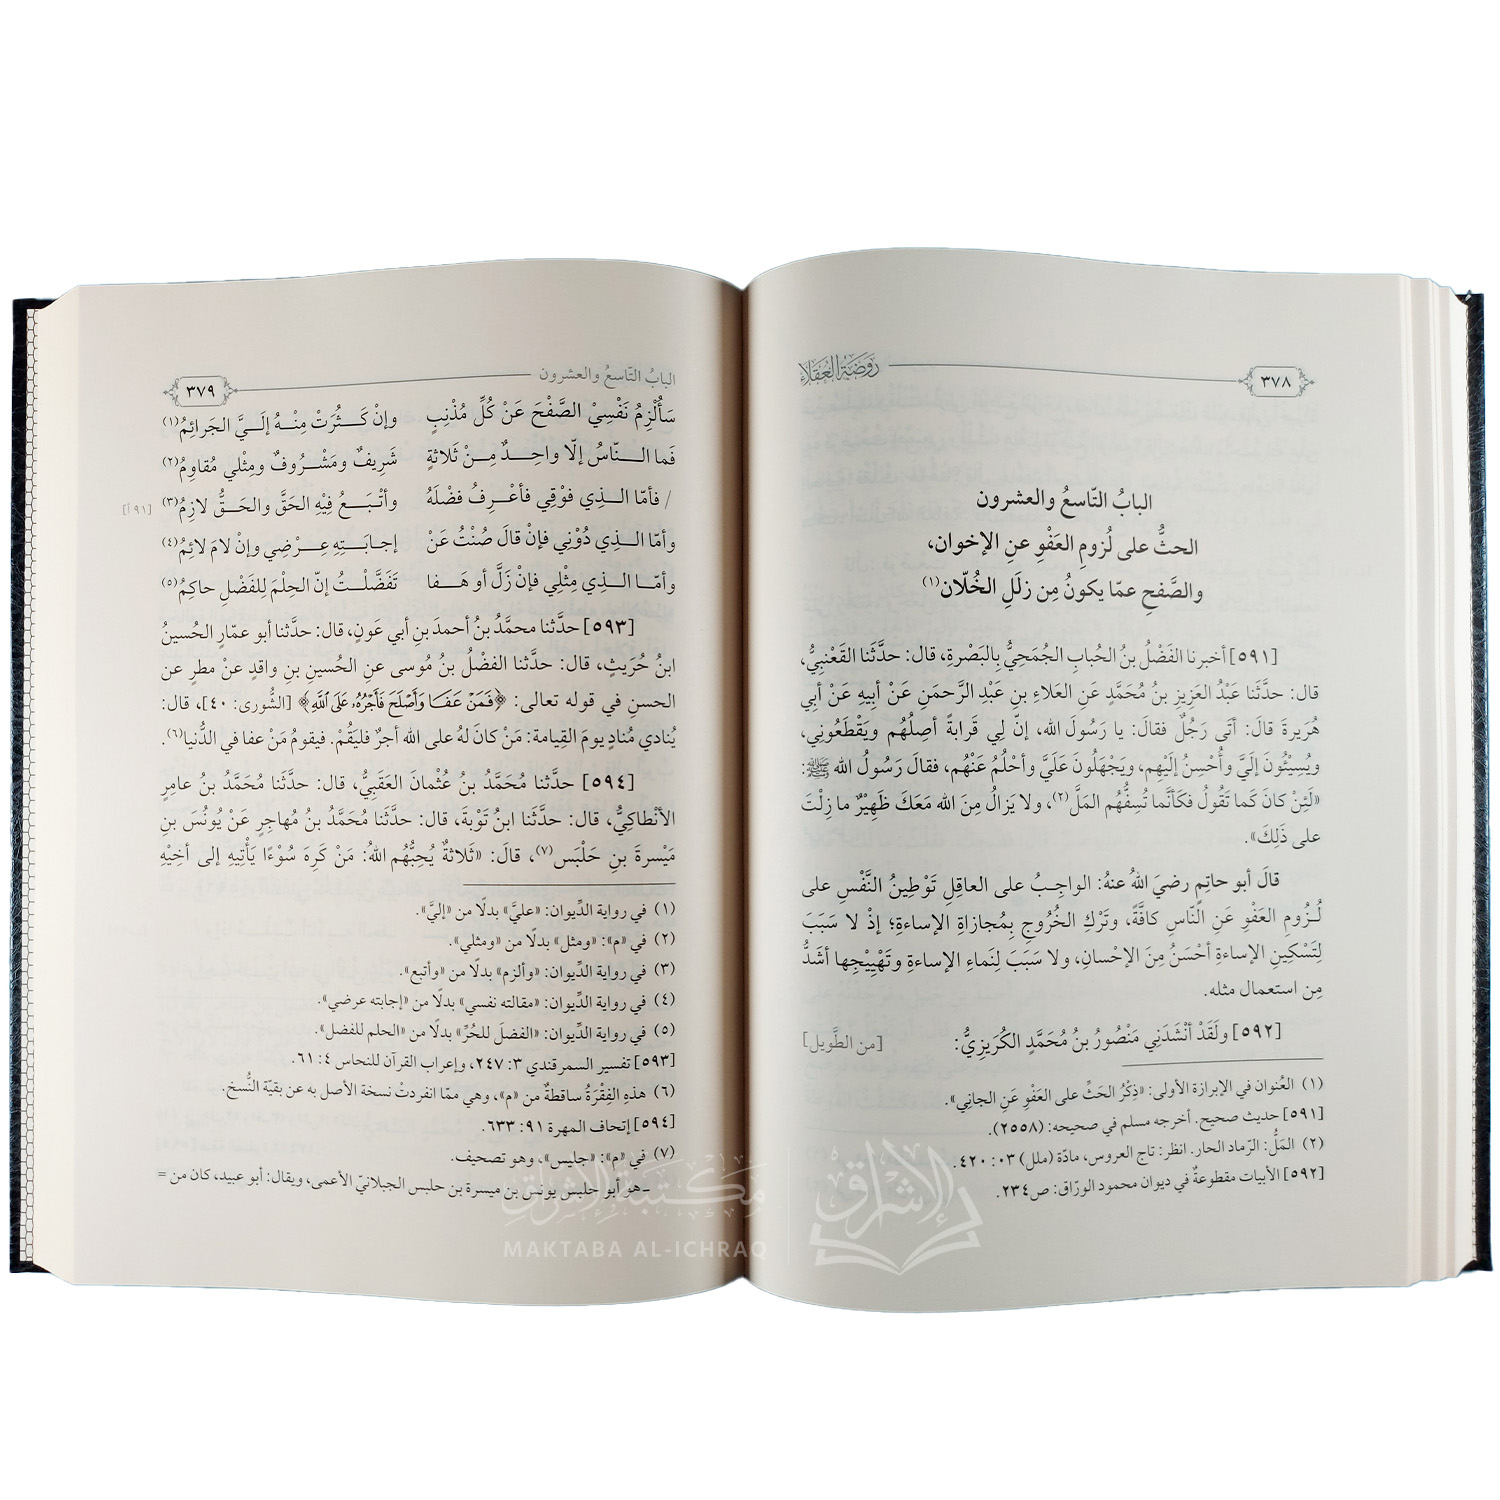 ٣٧٨
رَوضَة العُقَلاء
البابُ التّاسعُ والعشرون
الحثُّ على لُزومِ العَفْوِ عنِ الإخوان،
والصَّفحِ عمّا يكونُ مِن زلَلِ الخُلّان(١)
[٥٩١] أخبرنا الفَضْلُ بنُ الحُبابِ الجُمَحِيُّ بِالبَصْرةِ، قال: حدَّثَنا القَعْنبِيُّ،
قال: حدَّثَنا عَبْدُ العَزِيزِ بنُ مُحَمَّدٍ عَنِ العَلاءِ بنِ عَبْدِ الرَّحمَنِ عَنْ أبِيهِ عَنْ أبِي
هُرَيرةَ قالَ: أتَى رَجُلٌ فقالَ: يا رَسُولَ الله، إنّ لِي قَرابةً أصِلُهُم ويَقْطَعُونِي،
ويُسِيْئُونَ إلَيَّ وأُحْسِنُ إلَيْهِم، ويَجْهَلُونَ عَلَيَّ وأحْلُمُ عَنْهُم، فقالَ رَسُولُ الله ﷺ:
«لَئِنْ كانَ كَما تَقُولُ فكَأنَّما تُسِفُّهُم المَلَّ(٢)، ولا يَزالُ مِنَ الله مَعَكَ ظَهِيْرٌ ما زِلْتَ
على ذَلِكَ».
قالَ أبو حاتِمٍ رضيَ اللهُ عنهُ: الواجِبُ على العاقِلِ تَوْطِينُ النَّفْسِ على
لُزومِ العَفْوِ عَنِ النّاسِ كافَّةً، وتَرْكِ الخُرُوجِ بِمُجازاةِ الإساءةِ؛ إذْ لا سَبَبَ
لِتَسْكِينِ الإساءةِ أحْسَنُ مِنَ الإحْسانِ، ولا سَبَبَ لِنَماءِ الإساءةِ وتَهْيِيْجِها أشَدُّ
مِن استعمال مثله.
[٥٩٢] ولَقَدْ أنْشَدَنِي مَنْصُورُ بنُ مُحَمَّدٍ الكُرَيزِيُّ: [من الطَّويل]
(١) العُنوان في الإبرازة الأولى: «ذِكْرُ الحَثِّ على العَفْوِ عَنِ الجانِي».
[٥٩١] حديث صحيح. أخرجه مسلم في صحيحه: (٢٥٥٨).
(٢) المَلُّ: الرّماد الحار. انظر: تاج العروس، مادّة (ملل) ٠٣: ٤٢٠.
[٥٩٢] الأبيات مقطوعةٌ في ديوان محمود الورّاق: ص٢٣٤.
البابُ التّاسعُ والعشرون
٣٧٩
سَأُلْزِمُ نَفْسِيْ الصَّفْحَ عَنْ كُلِّ مُذْنِبٍ وإنْ كَثُرَتْ مِنْهُ إلَيَّ الجَرائِمُ(١)
فَما النّاسُ إلّا واحِدٌ مِنْ ثَلاثةٍ شَرِيفٌ ومَشْرُوفٌ ومِثْلي مُقاوِمُ(٢)
/ فأمّا الذِي فَوْقِي فأعْرِفُ فضْلَهُ وأتْبَعُ فِيْهِ الحَقَّ والحَقُّ لازِمُ(٣) [٩١أ]
وأمّا الذِي دُوْنِي فإنْ قالَ صُنْتُ عَنْ إجابَتِهِ عِرْضِي وإنْ لامَ لائِمُ(٤)
وأمّا الذِي مِثْلِي فإنْ زَلَّ أو هَفا تَفَضَّلْتُ إنّ الحِلْمَ لِلفَضْلِ حاكِمُ(٥)
[٥٩٣] حدَّثنا محمَّدُ بنُ أحمدَ بنِ أبي عَونٍ، قال: حدَّثنا أبو عمّارٍ الحُسينُ
ابنُ حُرَيثٍ، قال: حدَّثنا الفضْلُ بنُ مُوسى عنِ الحُسينِ بنِ واقدٍ عنْ مطرٍ عن
الحسنِ في قوله تعالى: ﴿فَمَنْ عَفَا وَأَصْلَحَ فَأَجْرُهُ عَلَى اللَّهِ﴾ [الشُّورى: ٤٠]، قال:
يُنادي مُنادٍ يومَ القِيامة: مَنْ كانَ لهُ على الله أجرٌ فليَقُمْ. فيقومُ مَنْ عفا في الدُّنيا(٦).
[٥٩٤] حدَّثَنا مُحَمَّدُ بنُ عُثْمانَ العَقَبِيُّ، قال: حدَّثَنا مُحَمَّدُ بنُ عامِرٍ
الأنْطاكِيُّ، قال: حدَّثَنا ابنُ تَوْبةَ، قال: حدَّثَنا مُحَمَّدُ بنُ مُهاجِرٍ عَنْ يُونُسَ بنِ
مَيْسرةَ بنِ حَلْبَس(٧)، قالَ: «ثَلاثةٌ يُحِبُّهُم اللهُ: مَنْ كَرِهَ سُوْءًا يَأْتِيهِ إلى أخِيْهِ
(١) في رواية الدِّيوان: «عليَّ» بدلًا من «إليَّ».
(٢) في «م»: «ومثل» بدلًا من «ومثلي».
(٣) في رواية الدِّيوان: «وألزم» بدلًا من «وأتبع».
(٤) في رواية الدِّيوان: «مقالته نفسي» بدلًا من «إجابته عرضي».
(٥) في رواية الدِّيوان: «الفضلَ للحُرِّ» بدلًا من «الحلم للفضل».
[٥٩٣] تفسير السمرقندي ٣: ٢٤٧، وإعراب القرآن للنحاس ٤: ٦١.
(٦) هذهِ الفِقْرَةُ ساقطةٌ من «م»، وهي ممّا انفردتْ نسخة الأصل به عن بقيّة النُّسخ.
[٥٩٤] إتحاف المهرة ٩١: ٦٣٣.
(٧) في «م»: «جليس»، وهو تصحيف.
ـ هو أبو حلبس يونس بن ميسرة بن حلبس الجبلانيّ الأعمى، ويقال: أبو عبيد، كان من =
مكتبة الإشراق
MAKTABA AL-ICHRAQ
الإشراق